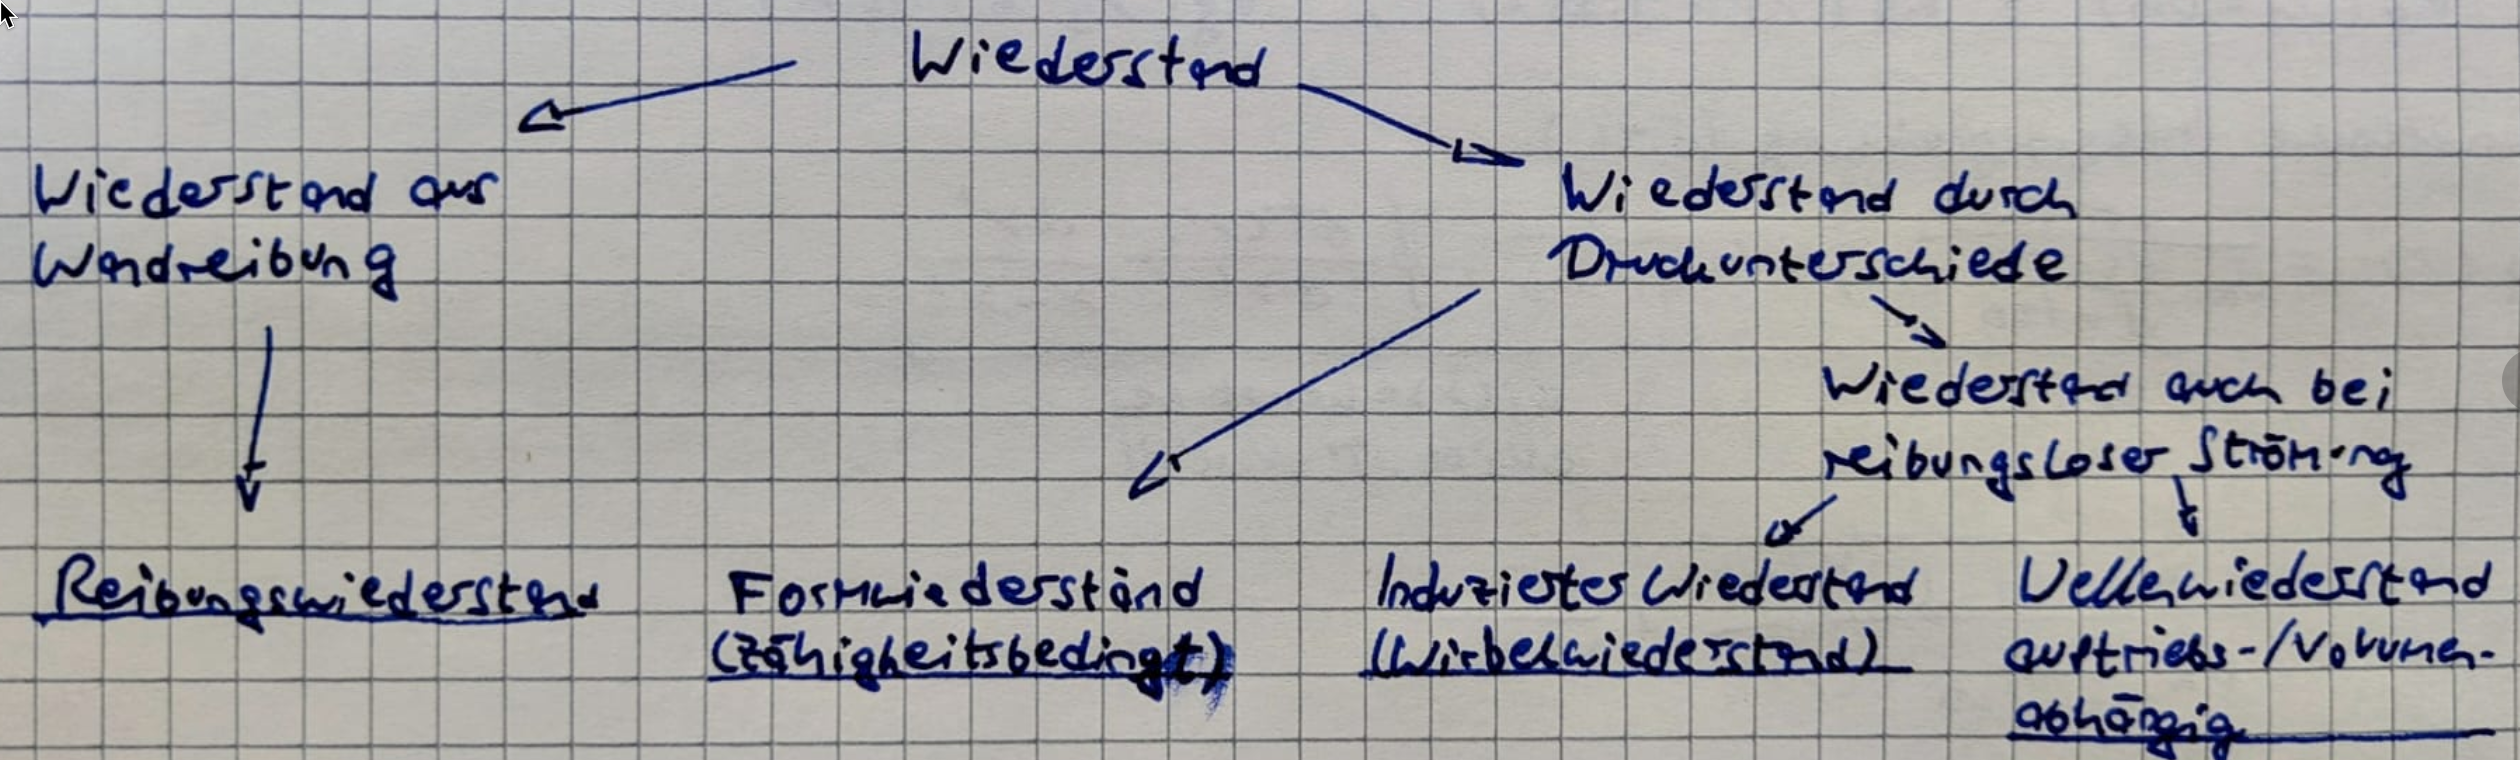 Wiederstand
Wiederstand aus
Wandreibung
Wiederstand durch
Druckunterschiede
Wiederstand auch bei
reibungsloser Strömung
Reibungswiederstand
Formwiederstand
(Zähigkeitsbedingt)
Induziertes Wiederstand
(Wirbelwiederstand)
Wellenwiederstand
auftriebs-/Volumen-
abhängig